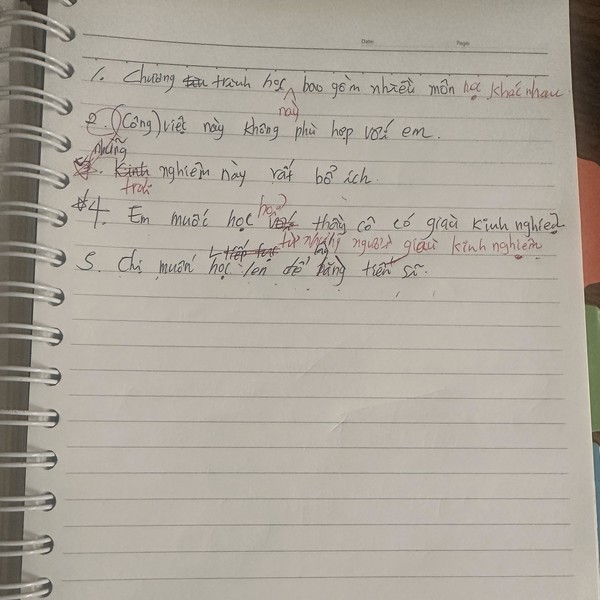 Date: Page:
1. Chương trình học bao gồm nhiều môn học khác nhau
này
2. (Công) việt này không phù hợp với em.
những
3. Kinh nghiệm này rất bổ ích.
trải
4. Em muốc học với thầy cô có giàu kinh nghiệm
hỏi
từ những người giàu kinh nghiệm
tiếp tục
5. Chị muốn học lên để bằng tiến sĩ.